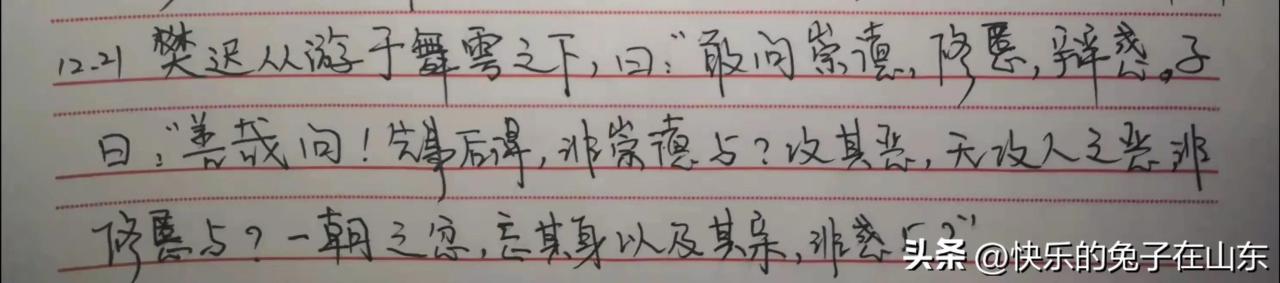 12.21 樊迟从游于舞雩之下,曰:“敢问崇德,修慝,辩惑。子
曰:“善哉问!先事后得,非崇德与?攻其恶,无攻人之恶非
修慝与?一朝之忿,忘其身以及其亲,非惑与?”
头条 @快乐的兔子在山东